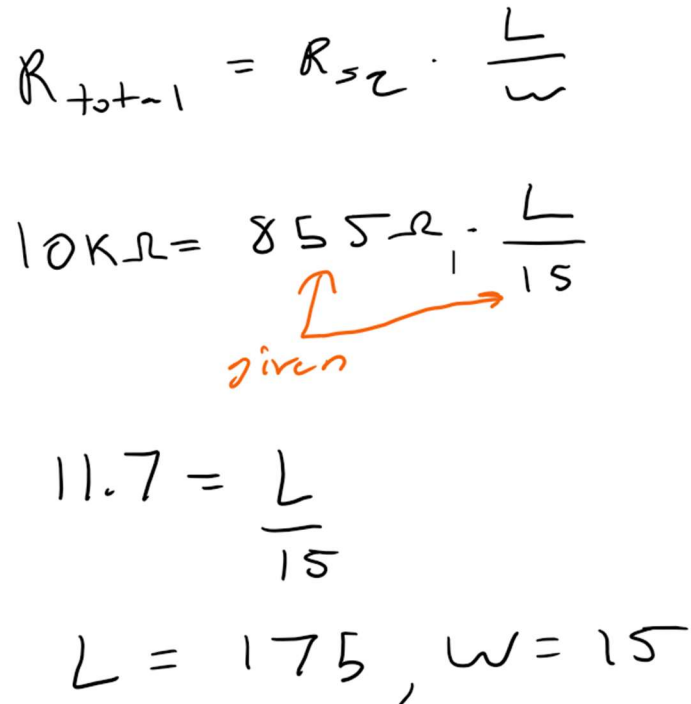 R_total = R_sq · L/W
10KΩ = 855Ω · L/15
given
11.7 = L/15
L = 175, W = 15